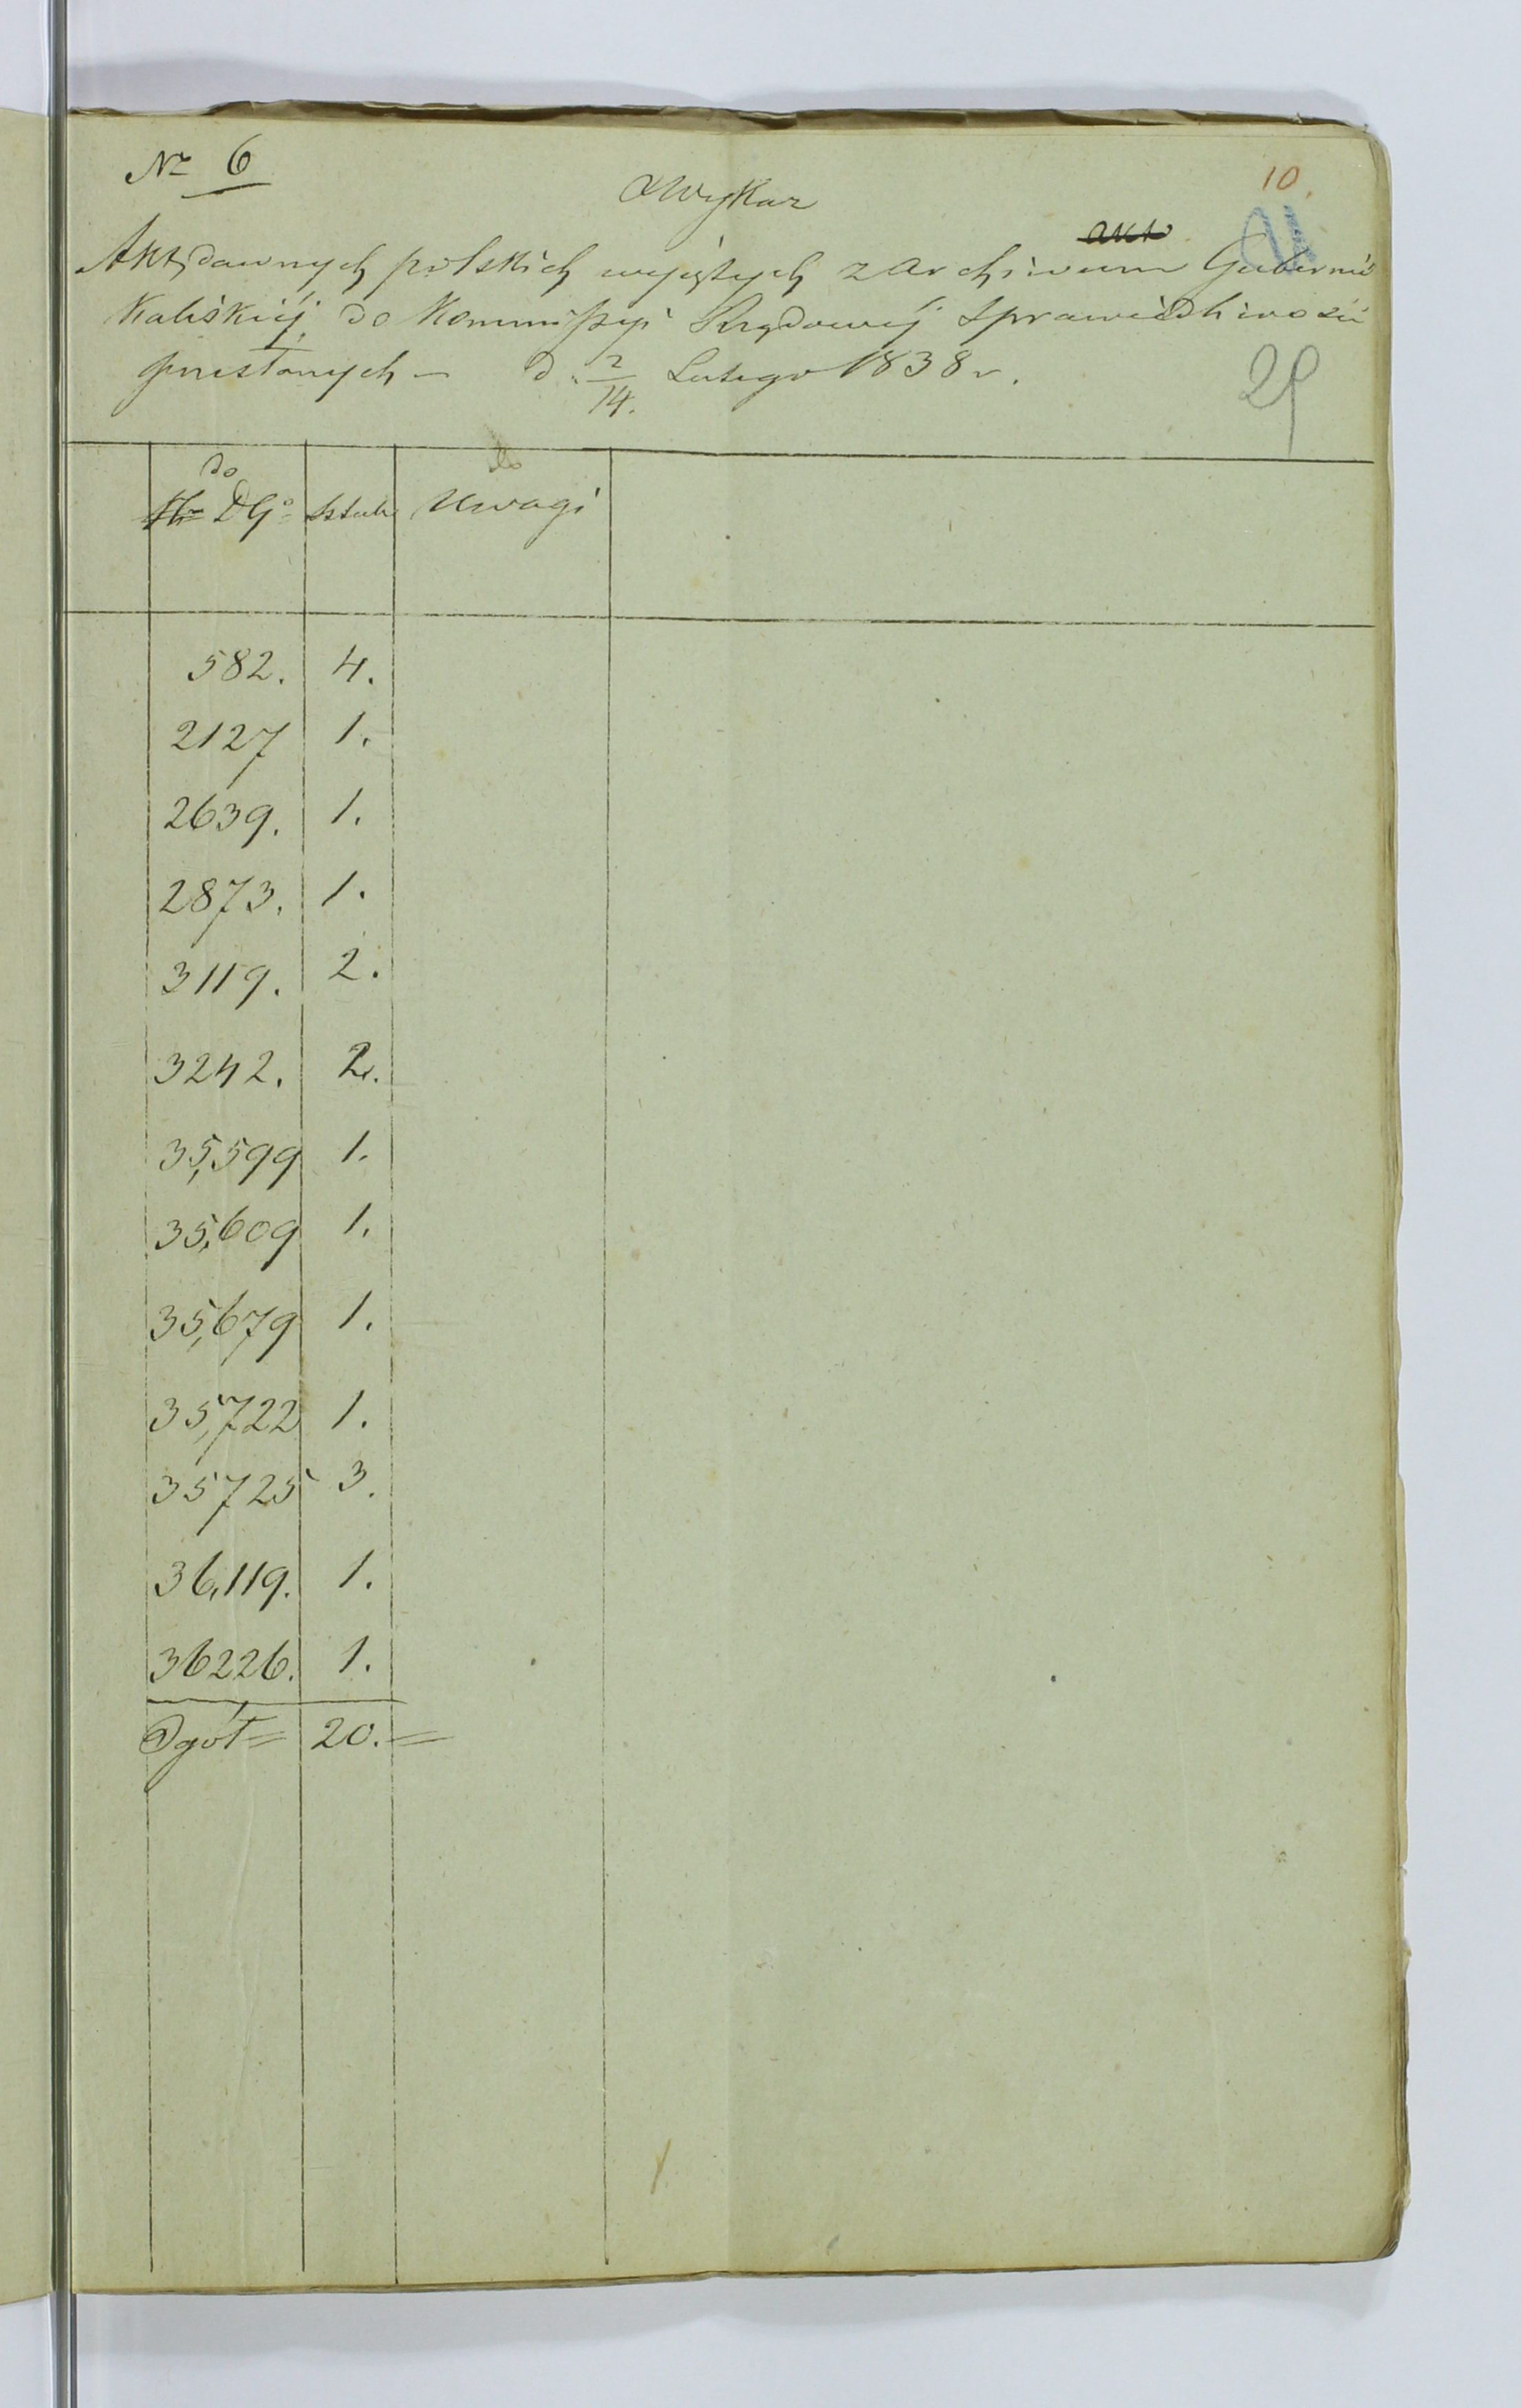 Nr 6
10.
Wykaz
akt
Akt dawnych polskich wyiętych z Archiwum Gubernii
Kaliskiéj do Kommissyi Rządowéj Sprawiedliwości
przesłanych — d. 2/14. Lutego 1838 r.
29
do
Nr DGo sztuk Uwagi
582. 4.
2127 1.
2639. 1.
2873. 1.
3119. 2.
3242. 2.
35,599 1.
35,609 1.
35,679 1.
35,722 1.
35725 3.
36,119. 1.
36226. 1.
Ogół = 20. =